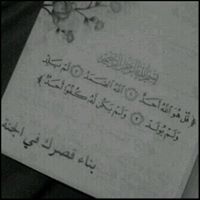 بسم الله الرحمن الرحيم
﴿ قل هو الله أحد ١ الله الصمد ٢ لم يلد
٣ ولم يولد ولم يكن له كفوا أحد ﴾
بناء قصرك في الجنة